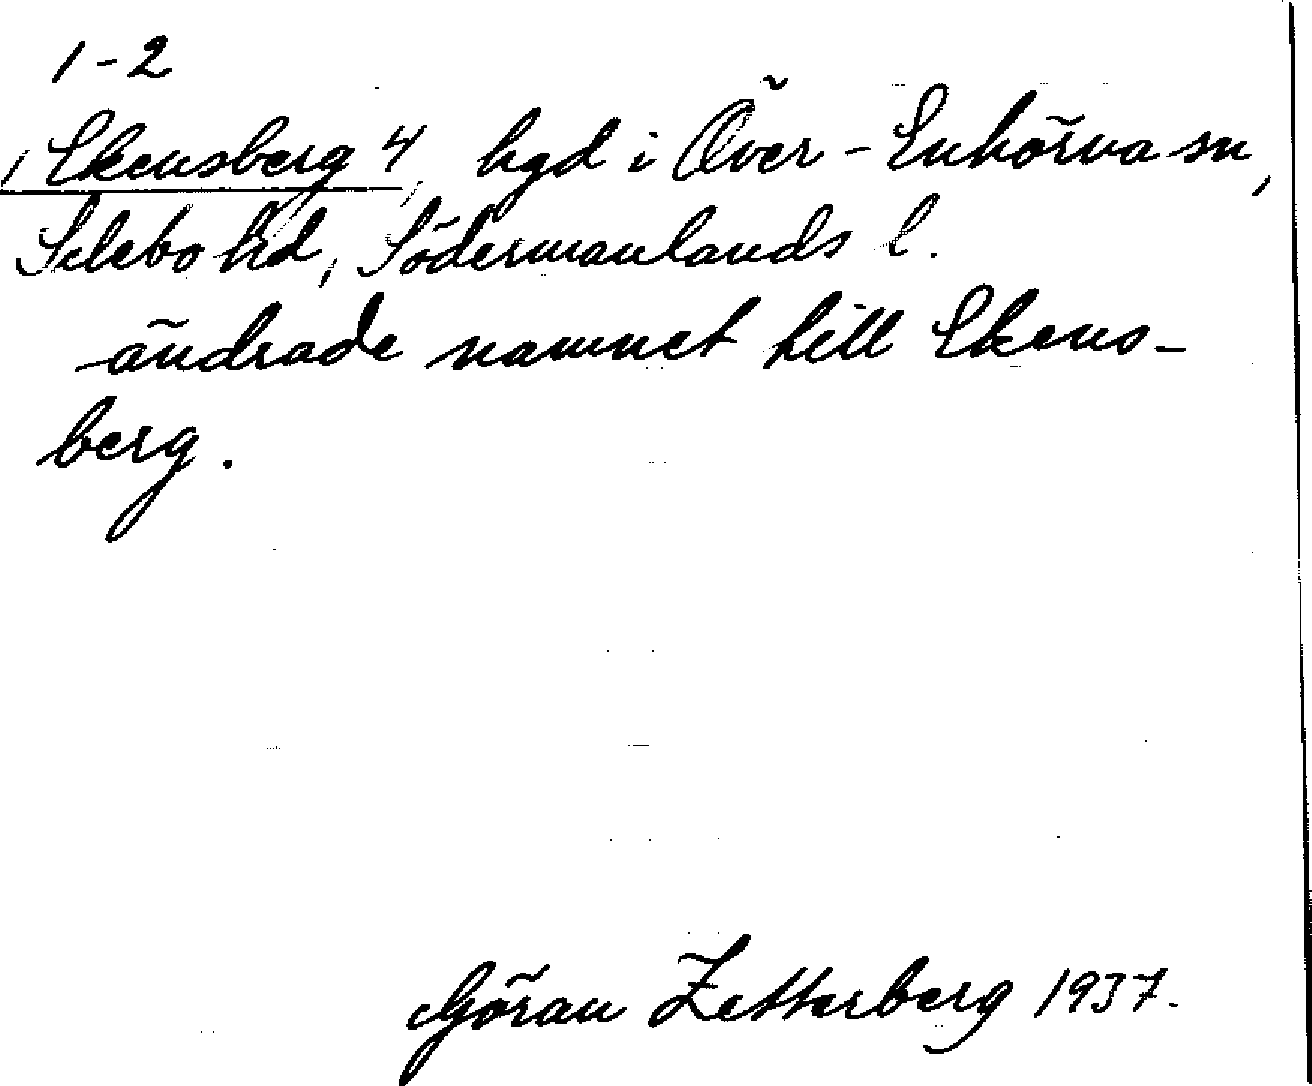 1-2
Ekensberg 4, hgd i Över-Enhörna sn,
Selebo hd, Södermanlands l.
ändrade namnet till Ekens-
berg.
Göran Zetterberg 1937.